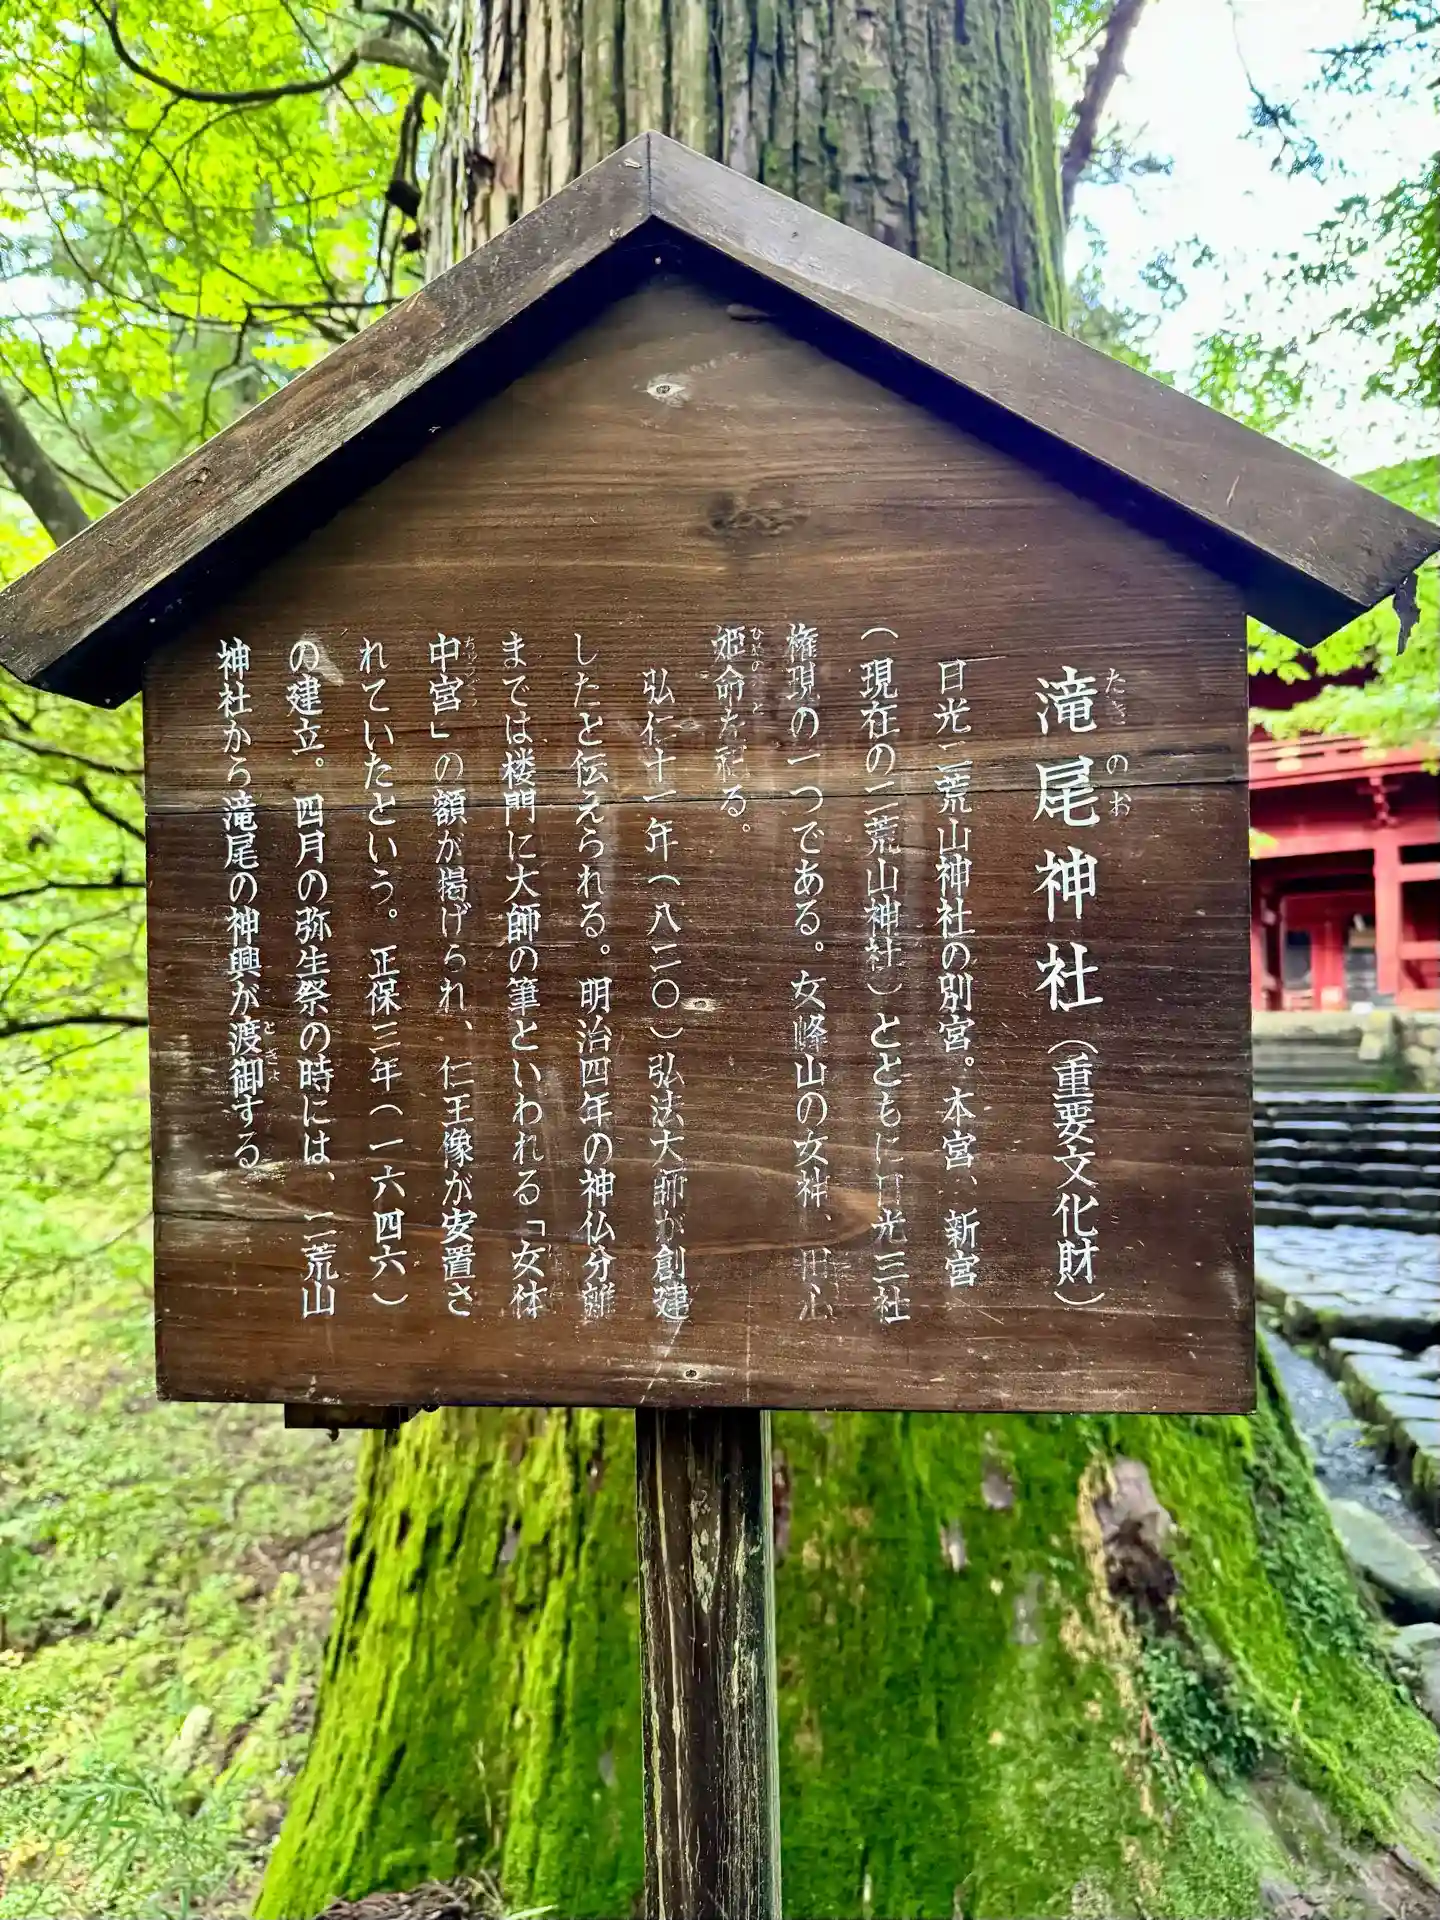 滝尾神社（重要文化財）
たきのお
日光二荒山神社の別宮。本宮、新宮
（現在の二荒山神社）とともに日光三社
権現の一つである。女峰山の女神、田心
姫命を祀る。
ひめのみこと
弘仁十一年（八二〇）弘法大師が創建
したと伝えられる。明治四年の神仏分離
までは楼門に大師の筆といわれる「女体
中宮」の額が掲げられ、仁王像が安置さ
ちゅうぐう
れていたという。正保三年（一六四六）
の建立。四月の弥生祭の時には、二荒山
神社から滝尾の神輿が渡御する
とぎょ